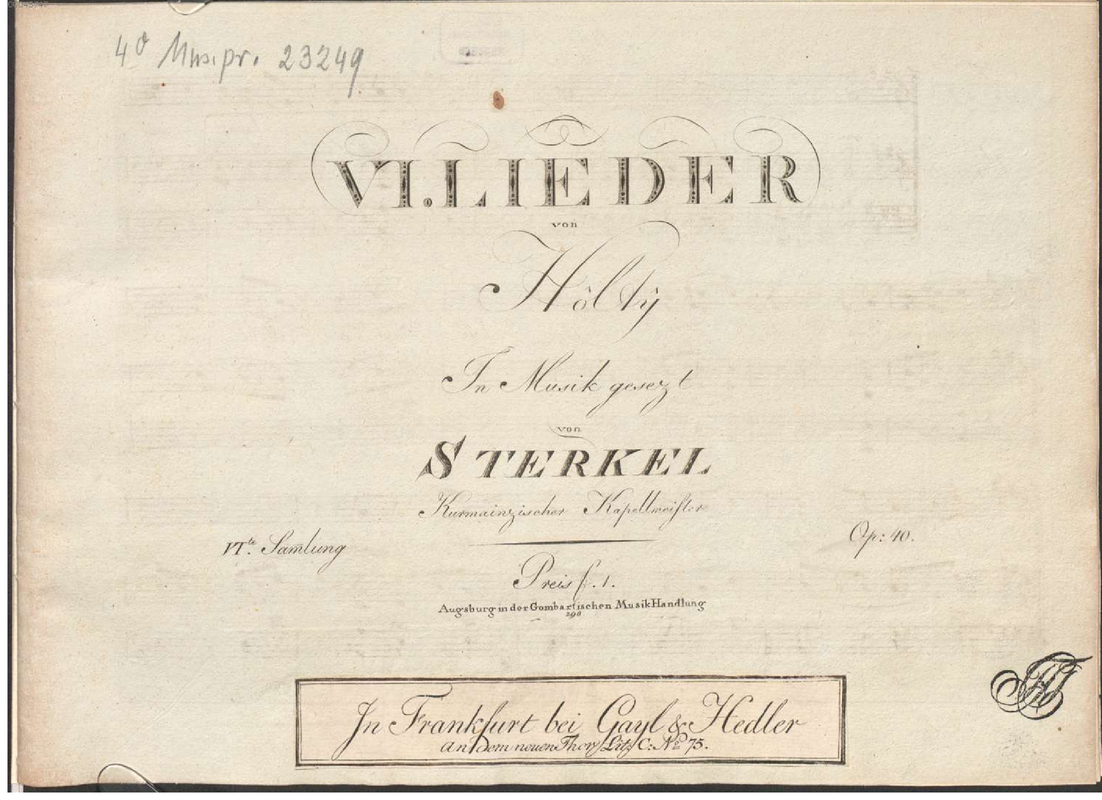 4° Mus.pr. 23249
VI. LIEDER
von
Hôltÿ
In Musik gesezt
von
STERKEL
Kurmainzischer Kapellmeister
VI.te Samlung
Op: 40.
Preis f. 1.
Augsburg in der Gombartischen MusikHandlung
298
In Frankfurt bei Gayl & Hedler
an dem neuen Thor Lit. C: No 75.